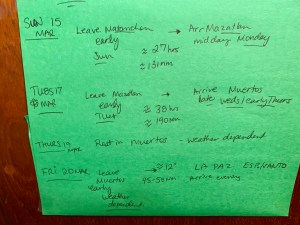 SUN 15 MAR Leave Matanchen early Sun → Arr Mazatlan midday Monday
≈ 27hrs
≈ 131nm
TUES 17 MAR Leave Mazatlan early Tues → Arrive Muertos late weds/early Thurs
≈ 38hrs
≈ 190nm
THURS 19 MAR Rest in Muertos - weather dependent
FRI 20 MAR Leave Muertos early weather dependent → ≈12° LA PAZ ESP. SANTO
45-50nm Arrive